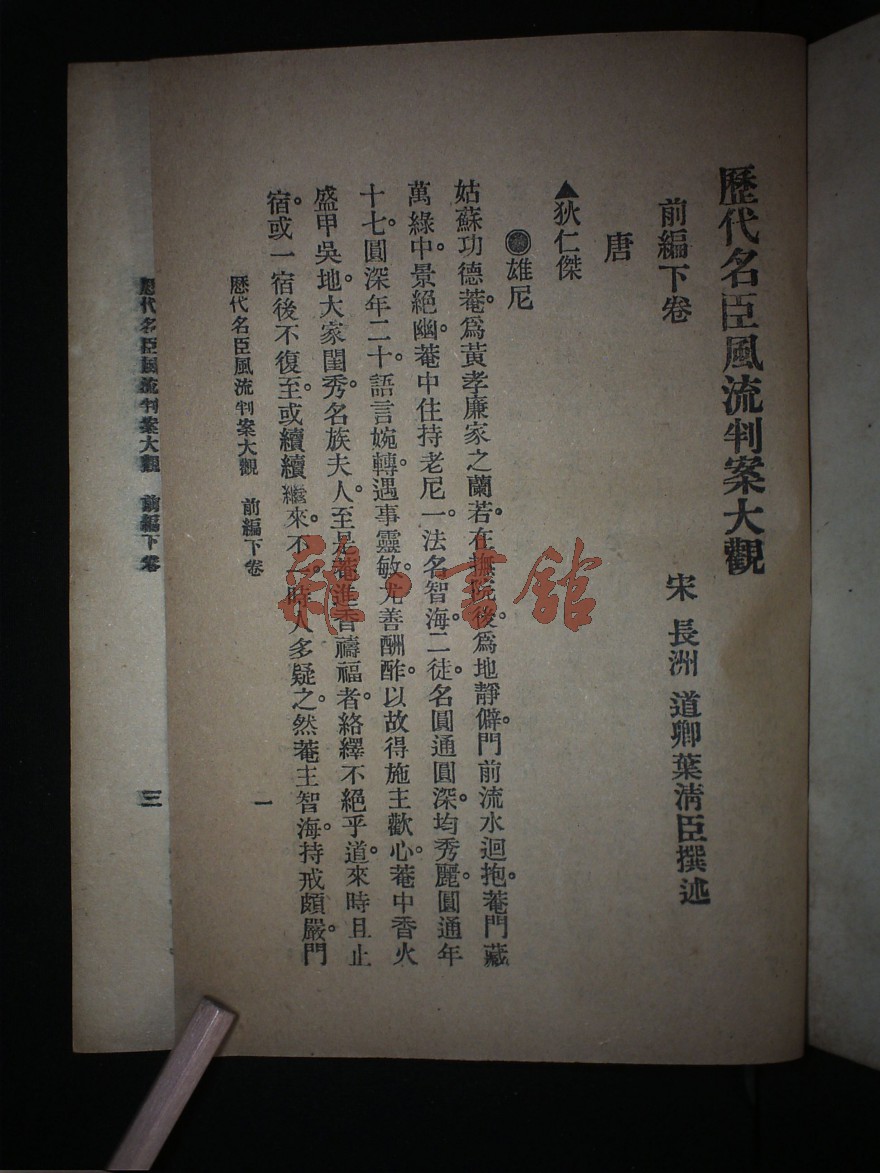 歷代名臣風流判案大觀
宋 長洲 道卿葉淸臣撰述
前編下卷
唐
▲狄仁傑
雄尼
姑蘇功德菴。爲黃孝廉家之蘭若。在撫院後。爲地靜僻。門前流水迴抱。菴門藏
萬綠中。景絕幽。菴中住持老尼一。法名智海。二徒。名圓通圓深。均秀麗。圓通年
十七。圓深年二十。語言婉轉。遇事靈敏。尤善酬酢。以故得施主歡心。菴中香火
盛甲吳地。大家閨秀。名族夫人。至是菴進香禱福者。絡繹不絕乎道。來時且止
宿。或一宿後不復至。或續續繼來。不一。時人多疑之。然菴主智海。持戒頗嚴。門
歷代名臣風流判案大觀 前編下卷
一
歷代名臣風流判案大觀 前編下卷
三
雜·書館